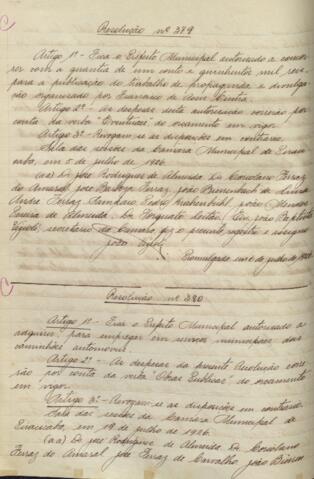 Resolução nº 379
Artigo 1º - Fica o Prefeito Municipal autorizado a concor-
rer com a quantia de um conto e quinhentos mil reis
para a publicação do trabalho de propaganda e divulga-
ção organizado por Francisco de
Artigo 2º - As despesas desta autorização correrão por
conta da verba "Eventuaes" do orçamento em vigor.
Artigo 3º - Revogam-se as disposições em contrario.
Sala das sessões da Camara Municipal de Piraci-
caba, em 5 de julho de 1926.
(aa) Dr. José Rodrigues de Almeida, Dr. Coriolano Ferraz
do Amaral, José Barboza Ferraz, João
André Ferraz Sampaio, Pedro Krahenbühl, João
de Almeida, Dr. João Baptista
secretario da Camara, fiz o presente registro e assigno
João
Promulgada em 6 de julho de 1926
Resolução nº 380
Artigo 1º - Fica o Prefeito Municipal autorizado a
adquirir para empregar em serviços municipaes dois
caminhões automoveis.
Artigo 2º - As despesas da presente Resolução corre-
rão por conta da verba "Obras Publicas" do orçamento
em vigor.
Artigo 3º - Revogam-se as disposições em contrario.
Sala das sessões da Camara Municipal de
Piracicaba, em 19 de julho de 1926.
(aa) Dr. José Rodrigues de Almeida, Dr. Coriolano
Ferraz do Amaral, José Ferraz de Carvalho, João